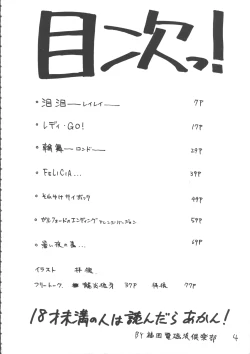 目次っ!
・泪泪 ーレイレイー 7P
・レディ・GO! 17P
・輪舞 ーロンドー 29P
・FELICIA... 39P
・それゆけサイボック 49P
・ガルフォードのエンディング 59P
・暑い夜の夢... 69P
イラスト
フリートーク 37P 77P
18才未満の人は読んだらあかん!
BY 4